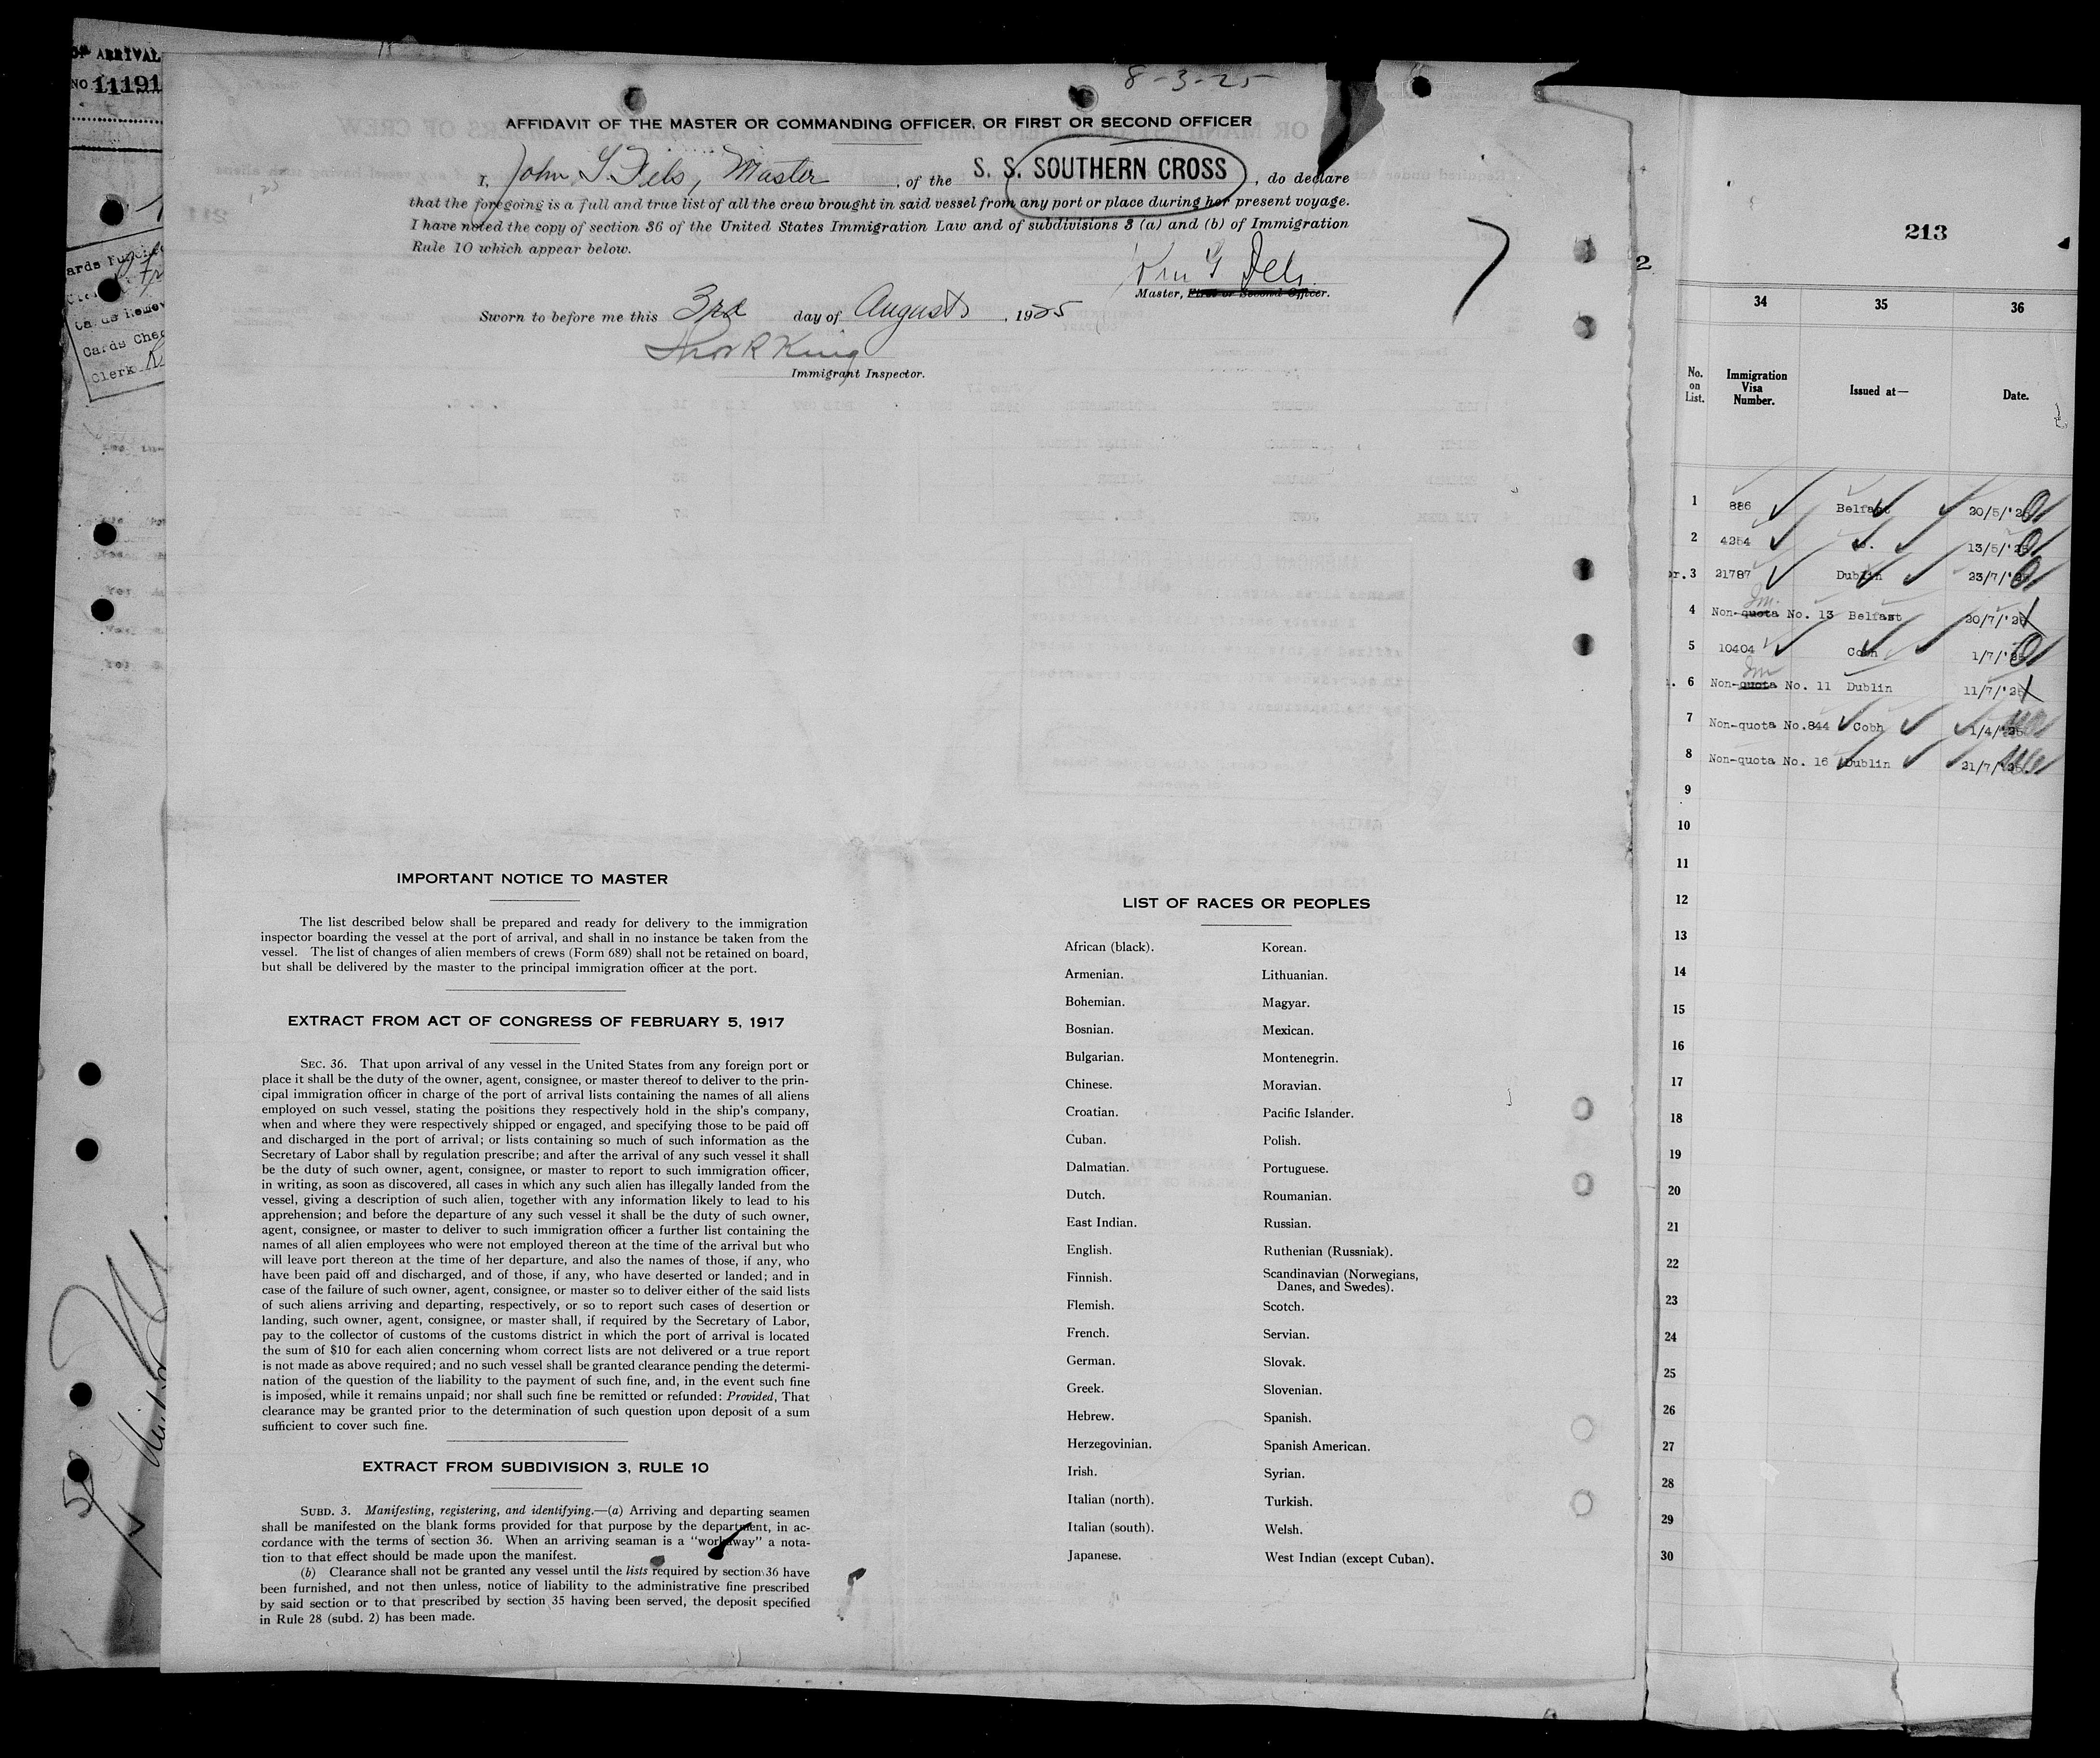 OF ARRIVAL
NO 11191
8-3-25
AFFIDAVIT OF THE MASTER OR COMMANDING OFFICER, OR FIRST OR SECOND OFFICER
I, John G. Fels, Master, of the S. S. SOUTHERN CROSS, do declare
that the foregoing is a full and true list of all the crew brought in said vessel from any port or place during her present voyage.
I have noted the copy of section 36 of the United States Immigration Law and of subdivisions 3 (a) and (b) of Immigration
Rule 10 which appear below.
Master, First or Second Officer.
Sworn to before me this 3rd day of August, 1925
King
Immigrant Inspector.
Cards Chec
Clerk
IMPORTANT NOTICE TO MASTER
The list described below shall be prepared and ready for delivery to the immigration
inspector boarding the vessel at the port of arrival, and shall in no instance be taken from the
vessel. The list of changes of alien members of crews (Form 689) shall not be retained on board,
but shall be delivered by the master to the principal immigration officer at the port.
EXTRACT FROM ACT OF CONGRESS OF FEBRUARY 5, 1917
SEC. 36. That upon arrival of any vessel in the United States from any foreign port or
place it shall be the duty of the owner, agent, consignee, or master thereof to deliver to the prin-
cipal immigration officer in charge of the port of arrival lists containing the names of all aliens
employed on such vessel, stating the positions they respectively hold in the ship's company,
when and where they were respectively shipped or engaged, and specifying those to be paid off
and discharged in the port of arrival; or lists containing so much of such information as the
Secretary of Labor shall by regulation prescribe; and after the arrival of any such vessel it shall
be the duty of such owner, agent, consignee, or master to report to such immigration officer,
in writing, as soon as discovered, all cases in which any such alien has illegally landed from the
vessel, giving a description of such alien, together with any information likely to lead to his
apprehension; and before the departure of any such vessel it shall be the duty of such owner,
agent, consignee, or master to deliver to such immigration officer a further list containing the
names of all alien employees who were not employed thereon at the time of the arrival but who
will leave port thereon at the time of her departure, and also the names of those, if any, who
have been paid off and discharged, and of those, if any, who have deserted or landed; and in
case of the failure of such owner, agent, consignee, or master so to deliver either of the said lists
of such aliens arriving and departing, respectively, or so to report such cases of desertion or
landing, such owner, agent, consignee, or master shall, if required by the Secretary of Labor,
pay to the collector of customs of the customs district in which the port of arrival is located
the sum of $10 for each alien concerning whom correct lists are not delivered or a true report
is not made as above required; and no such vessel shall be granted clearance pending the determi-
nation of the question of the liability to the payment of such fine, and, in the event such fine
is imposed, while it remains unpaid; nor shall such fine be remitted or refunded: Provided, That
clearance may be granted prior to the determination of such question upon deposit of a sum
sufficient to cover such fine.
EXTRACT FROM SUBDIVISION 3, RULE 10
SUBD. 3. Manifesting, registering, and identifying.—(a) Arriving and departing seamen
shall be manifested on the blank forms provided for that purpose by the department, in ac-
cordance with the terms of section 36. When an arriving seaman is a "workaway" a nota-
tion to that effect should be made upon the manifest.
(b) Clearance shall not be granted any vessel until the lists required by section 36 have
been furnished, and not then unless, notice of liability to the administrative fine prescribed
by said section or to that prescribed by section 35 having been served, the deposit specified
in Rule 28 (subd. 2) has been made.
LIST OF RACES OR PEOPLES
African (black).
Armenian.
Bohemian.
Bosnian.
Bulgarian.
Chinese.
Croatian.
Cuban.
Dalmatian.
Dutch.
East Indian.
English.
Finnish.
Flemish.
French.
German.
Greek.
Hebrew.
Herzegovinian.
Irish.
Italian (north).
Italian (south).
Japanese.
Korean.
Lithuanian.
Magyar.
Mexican.
Montenegrin.
Moravian.
Pacific Islander.
Polish.
Portuguese.
Roumanian.
Russian.
Ruthenian (Russniak).
Scandinavian (Norwegians,
Danes, and Swedes).
Scotch.
Servian.
Slovak.
Slovenian.
Spanish.
Spanish American.
Syrian.
Turkish.
Welsh.
West Indian (except Cuban).
2
213
34 35 36
No. on List. Immigration Visa Number. Issued at— Date.
1 886 Belfast 20/5/'25
2 4254 13/5/'25
3 21787 Dublin 23/7/'25
4 Non-quota No. 13 Belfast 20/7/'25
5 10404 Cobh 1/7/'25
6 Non-quota No. 11 Dublin 11/7/'25
7 Non-quota No.844 Cobh 1/4/'25
8 Non-quota No. 16 Dublin 21/7/'25
9
10
11
12
13
14
15
16
17
18
19
20
21
22
23
24
25
26
27
28
29
30